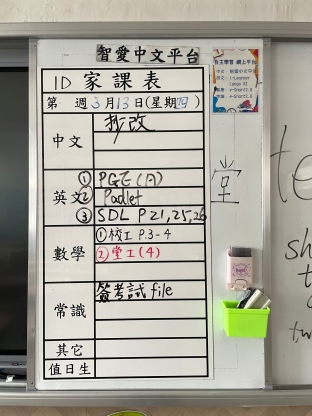 智愛中文平台
自主學習 網上平台
1D 家課表
第 週 3月13日(星期四)
中文
抄改
英文
① PGE (八)
② Padlet
③ SDL P 21,25,26
堂
數學
① 校工 P.3-4
② 堂工(4)
常識
簽考試 file
其它
值日生
te
sh
t